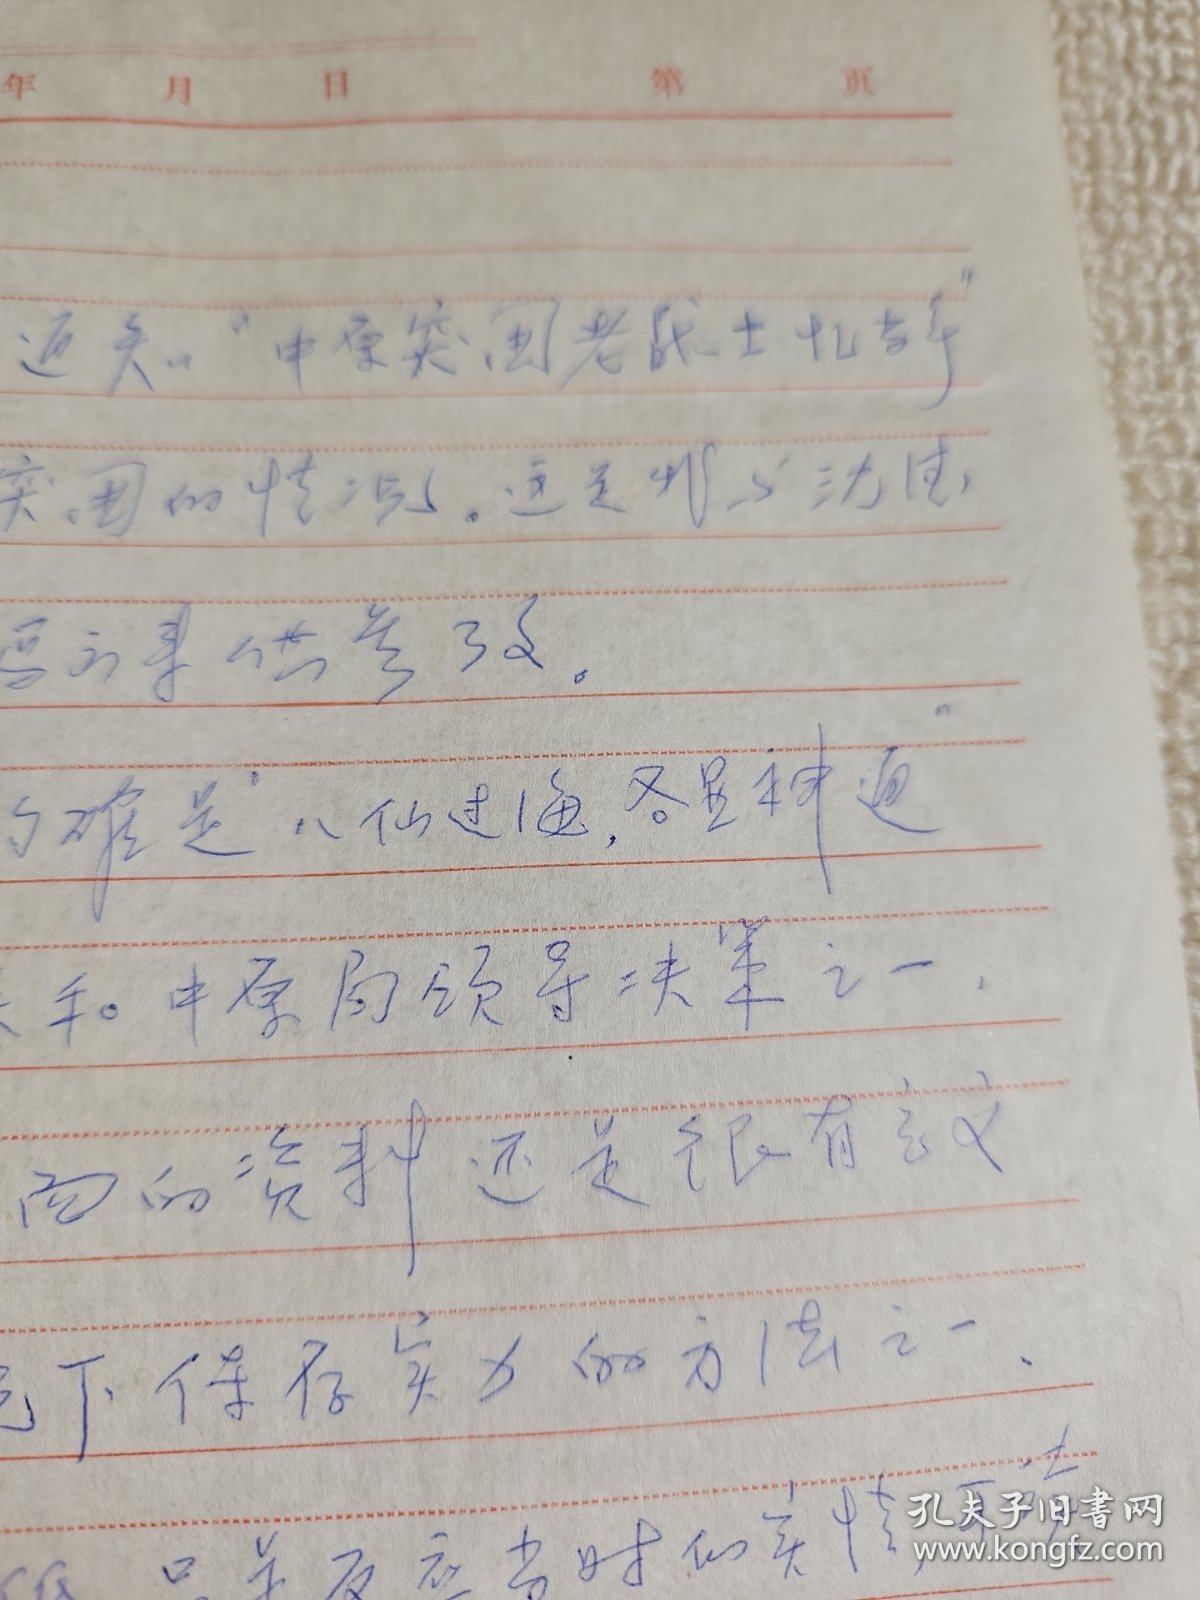 年 月 日 第 页
近知"中原突围老战士忆当年"
突围的情况。这是我与沈德
写的 供参考。
的确是"八仙过海,各显神通"。
关和中原局领导决策之一,
面的资料还是很有意义
况下保存实力的方法之一、
只是反应当时的实情,
孔夫子旧书网
www.kongfz.com